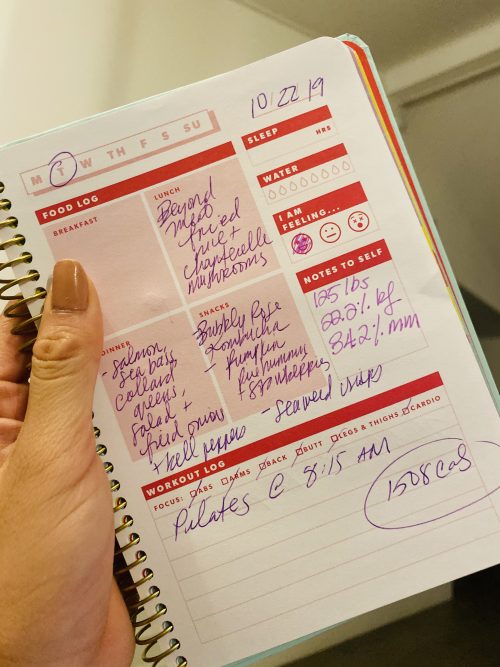 10/22/19
M T W TH F S SU
SLEEP
HRS
WATER
I AM
FEELING...
NOTES TO SELF
125 lbs
22.2% bf
34.2% mm
FOOD LOG
BREAKFAST
LUNCH
Beyond
meat
fried
rice +
chanterelle
mushrooms
DINNER
- Salmon
sea bass
collard
greens,
salad +
fried onions
+ bell peppers
SNACKS
- Bubbly Rose
Kombucha
- Pumpkin
pie hummus
+ strawberries
- seaweed crisps
WORKOUT LOG
FOCUS: ABS ARMS BACK BUTT LEGS & THIGHS CARDIO
Pilates @ 8:15 AM
1508 cals